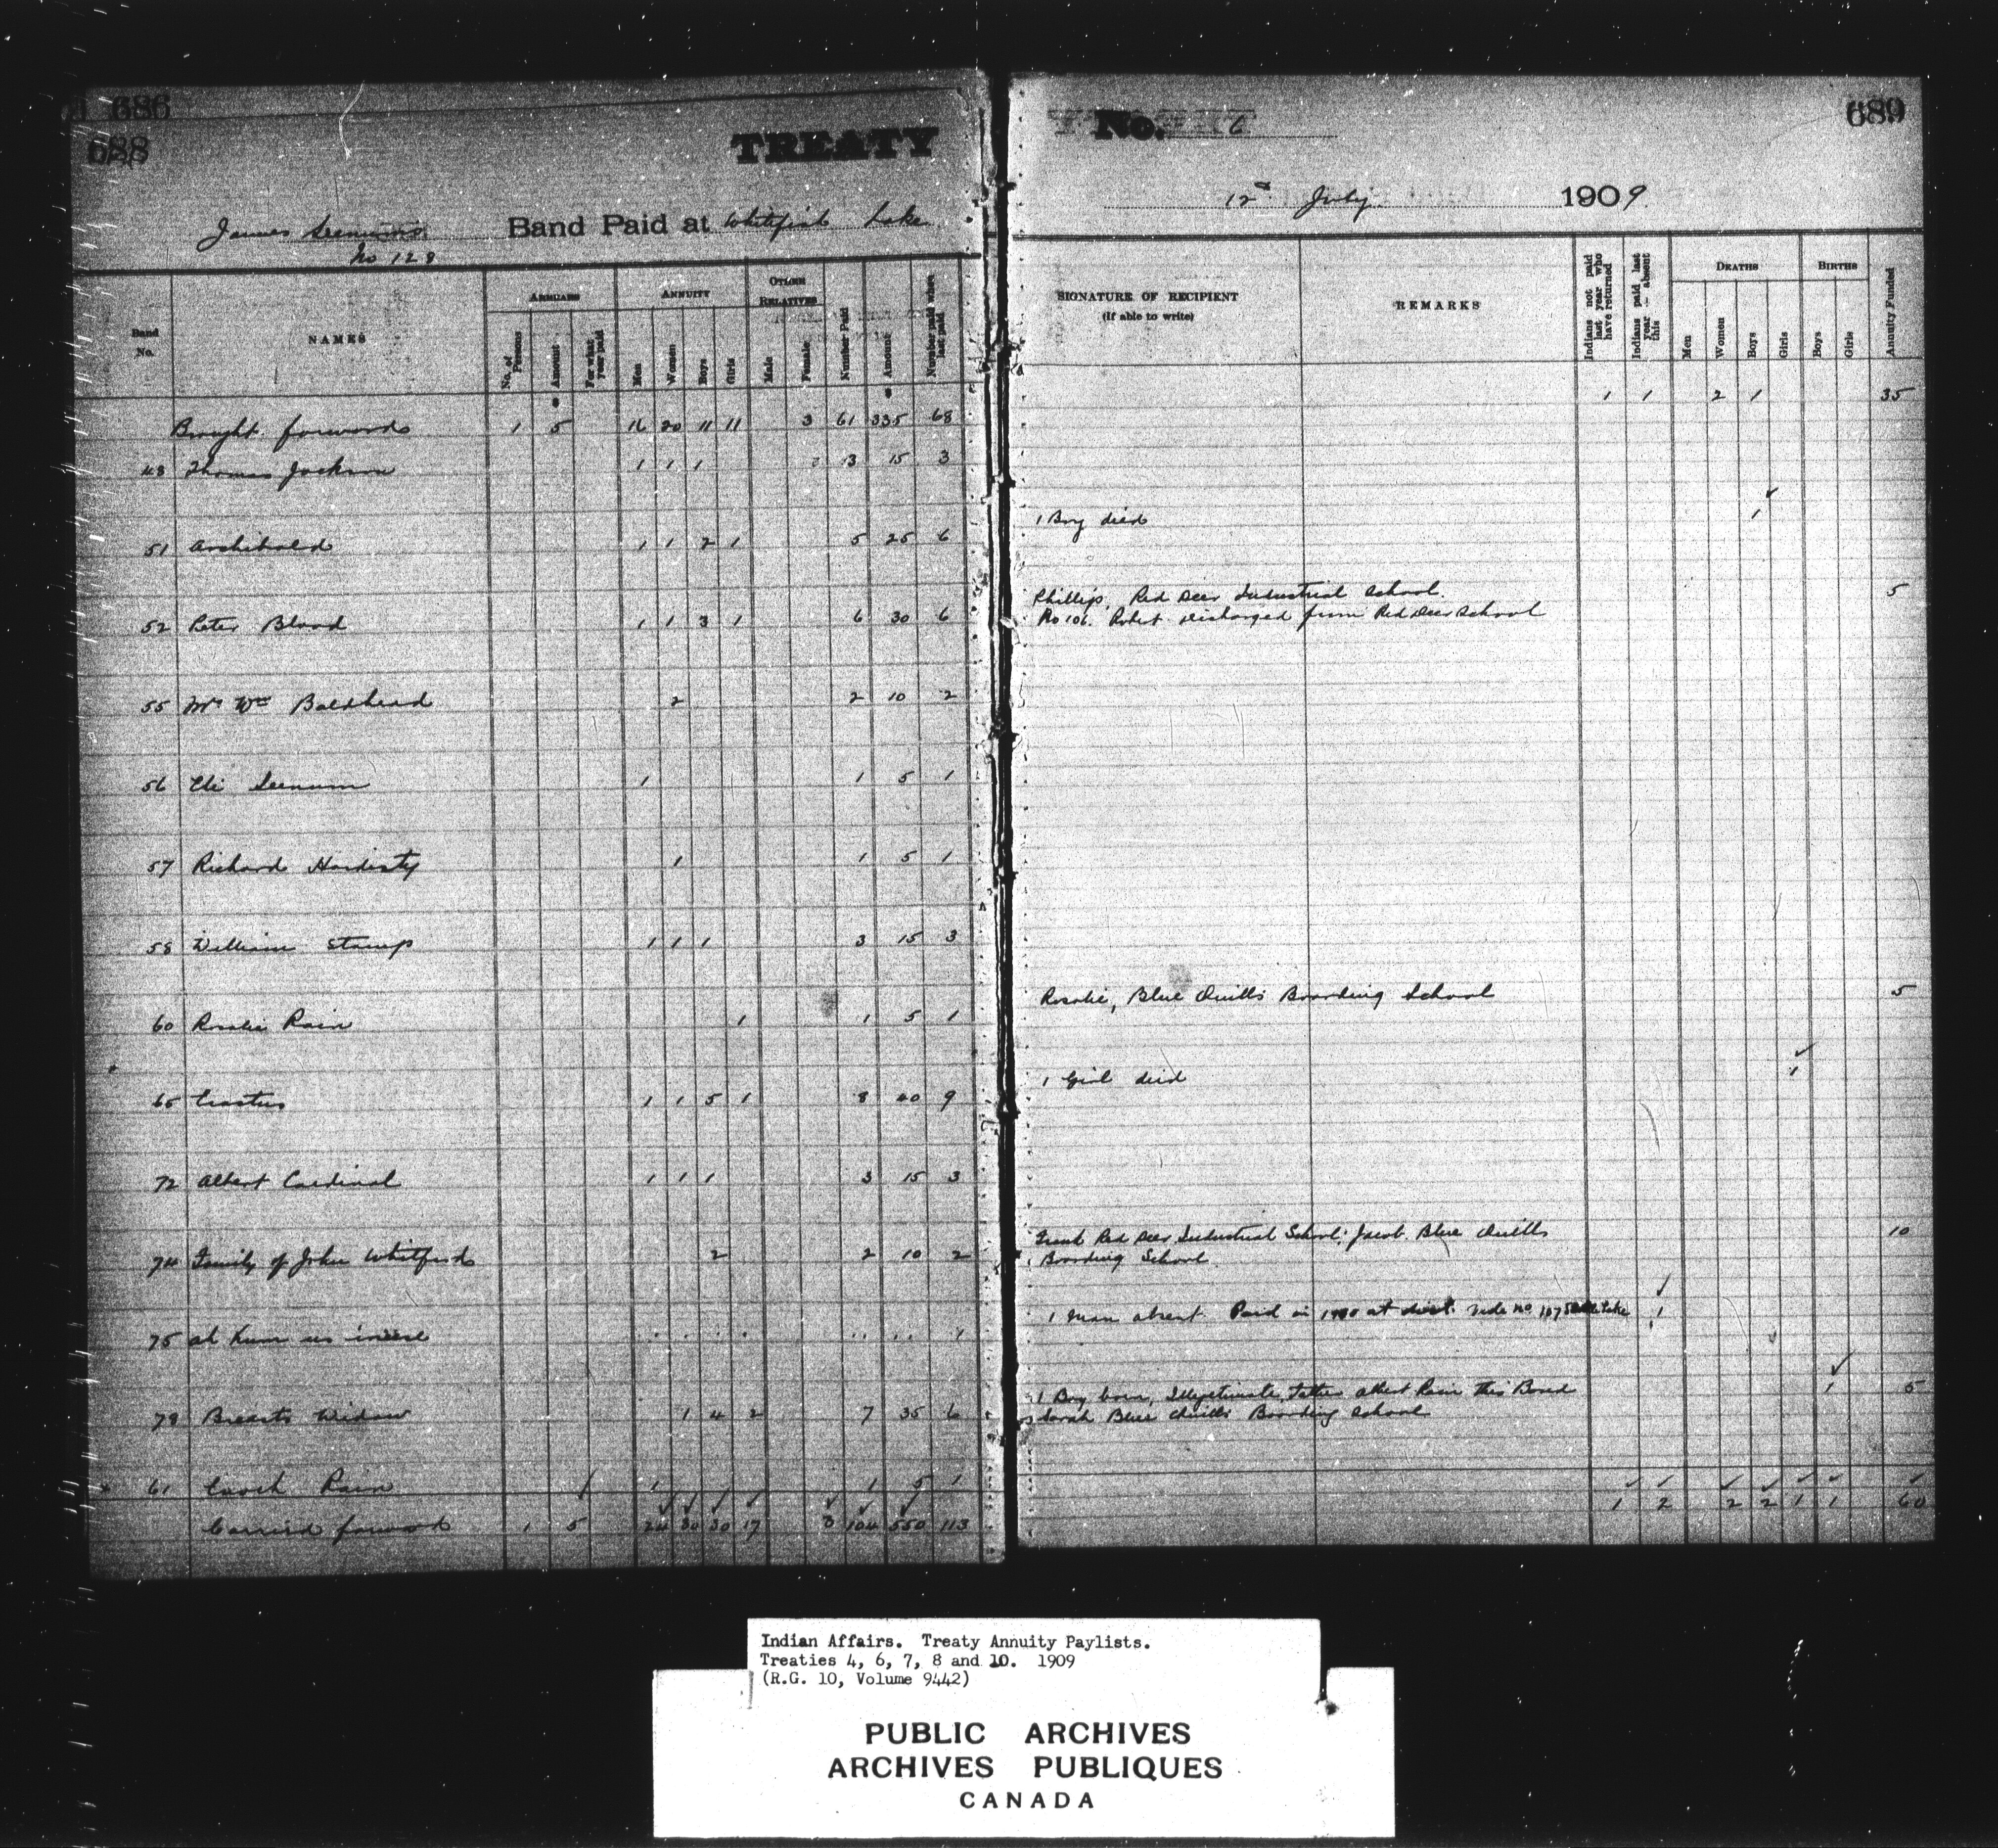 686
688
TREATY
James Seenum's Band Paid at Whitefish Lake
No 128
Band No.
NAMES
ARREARS
No. of Persons
Amount
For what year paid
ANNUITY
Men
Women
Boys
Girls
OTHER RELATIVES
Male
Female
Number Paid
Amount
Number paid when last paid
Brought forwards 1 5 16 20 11 11 3 61 335 68
48 Thomas Jackson 1 1 1 3 15 3
51 Archibald 1 1 2 1 5 25 6
52 Peter Blood 1 1 3 1 6 30 6
55 Mrs Wm Baldhead 2 2 10 2
56 Eli Seenum 1 1 5 1
57 Richard Hardisty 1 1 5 1
58 William Stamp 1 1 1 3 15 3
60 Rosalie Rain 1 1 5 1
65 Erastus 1 1 5 1 8 40 9
72 Albert Cardinal 1 1 1 3 15 3
74 Family of John Whitford 2 2 10 2
75 ah kum us 1
78 Breasts Widow 1 4 2 7 35 6
61 Enoch Rain 1 1 5 1
Carried forward 1 5 24 30 30 17 3 104 550 113
No. 6
689
12th July 1909
SIGNATURE OF RECIPIENT
(If able to write)
REMARKS
Indians not paid last year who have returned
Indians paid last year — absent this
DEATHS
Men
Women
Boys
Girls
BIRTHS
Boys
Girls
Annuity Funded
1 1 2 1 35
1 Boy died 1
Phillip, Red Deer Industrial School. 5
No 106. Robert discharged from Red Deer School
Rosalie, Blue Quills Boarding School 5
1 Girl died 1
Frank Red Deer Industrial School. Jacob Blue Quills 10
Boarding School
1 man absent. Paid in at vide no 107 Lake 1
1 Boy born, Illegitimate, Father Albert Rain this Band 1 5
Sarah Blue Quills Boarding School
1 2 2 2 1 1 60
Indian Affairs. Treaty Annuity Paylists.
Treaties 4, 6, 7, 8 and 10. 1909
(R.G. 10, Volume 9442)
PUBLIC ARCHIVES
ARCHIVES PUBLIQUES
CANADA